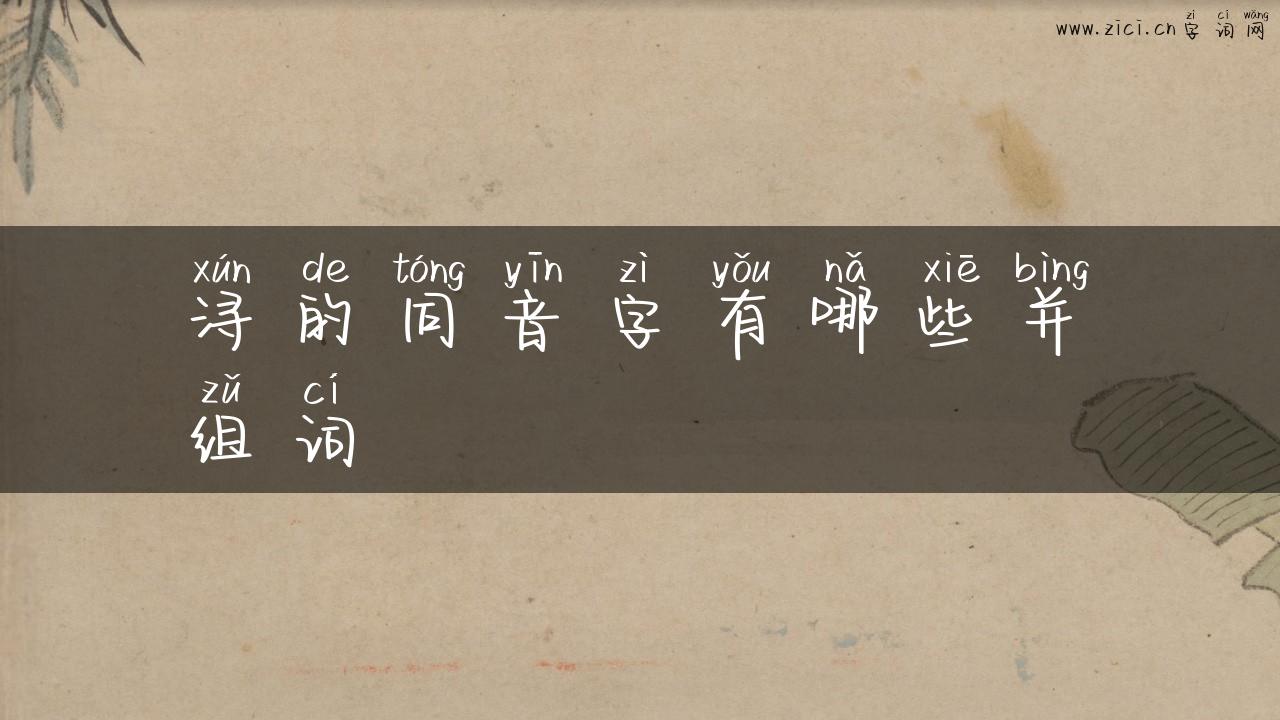 zì cí wǎng
www.zici.cn 字词网
xún de tóng yīn zì yǒu nǎ xiē bìng
浔的同音字有哪些并
zǔ cí
组词